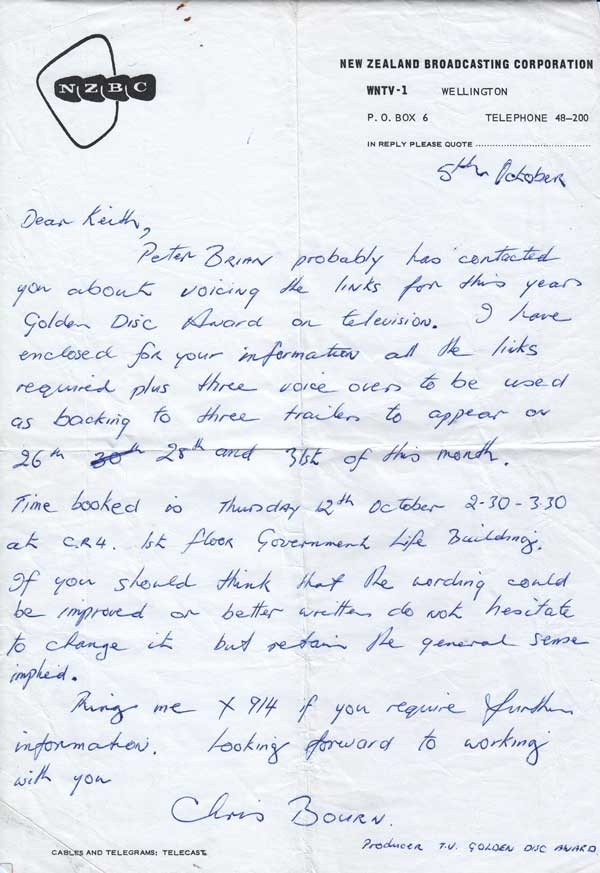 NZBC
NEW ZEALAND BROADCASTING CORPORATION
WNTV-1 WELLINGTON
P. O. BOX 6 TELEPHONE 48-200
IN REPLY PLEASE QUOTE
5th October
Dear Keith,
Peter BRIAN probably has contacted
you about voicing the links for this years
Golden Disc Award on television. I have
enclosed for your information all the links
required plus three voice overs to be used
as backing to three trailers to appear on
26th 30th 28th and 31st of this month.
Time booked is Thursday 12th October 2-30-3.30
at C.R.4. 1st floor Government Life Building.
If you should think that the wording could
be improved or better written do not hesitate
to change it but retain the general sense
implied.
Ring me X 914 if you require further
information. Looking forward to working
with you
Chris BOURN.
Producer T.V. GOLDEN DISC AWARD
CABLES AND TELEGRAMS: TELECAST